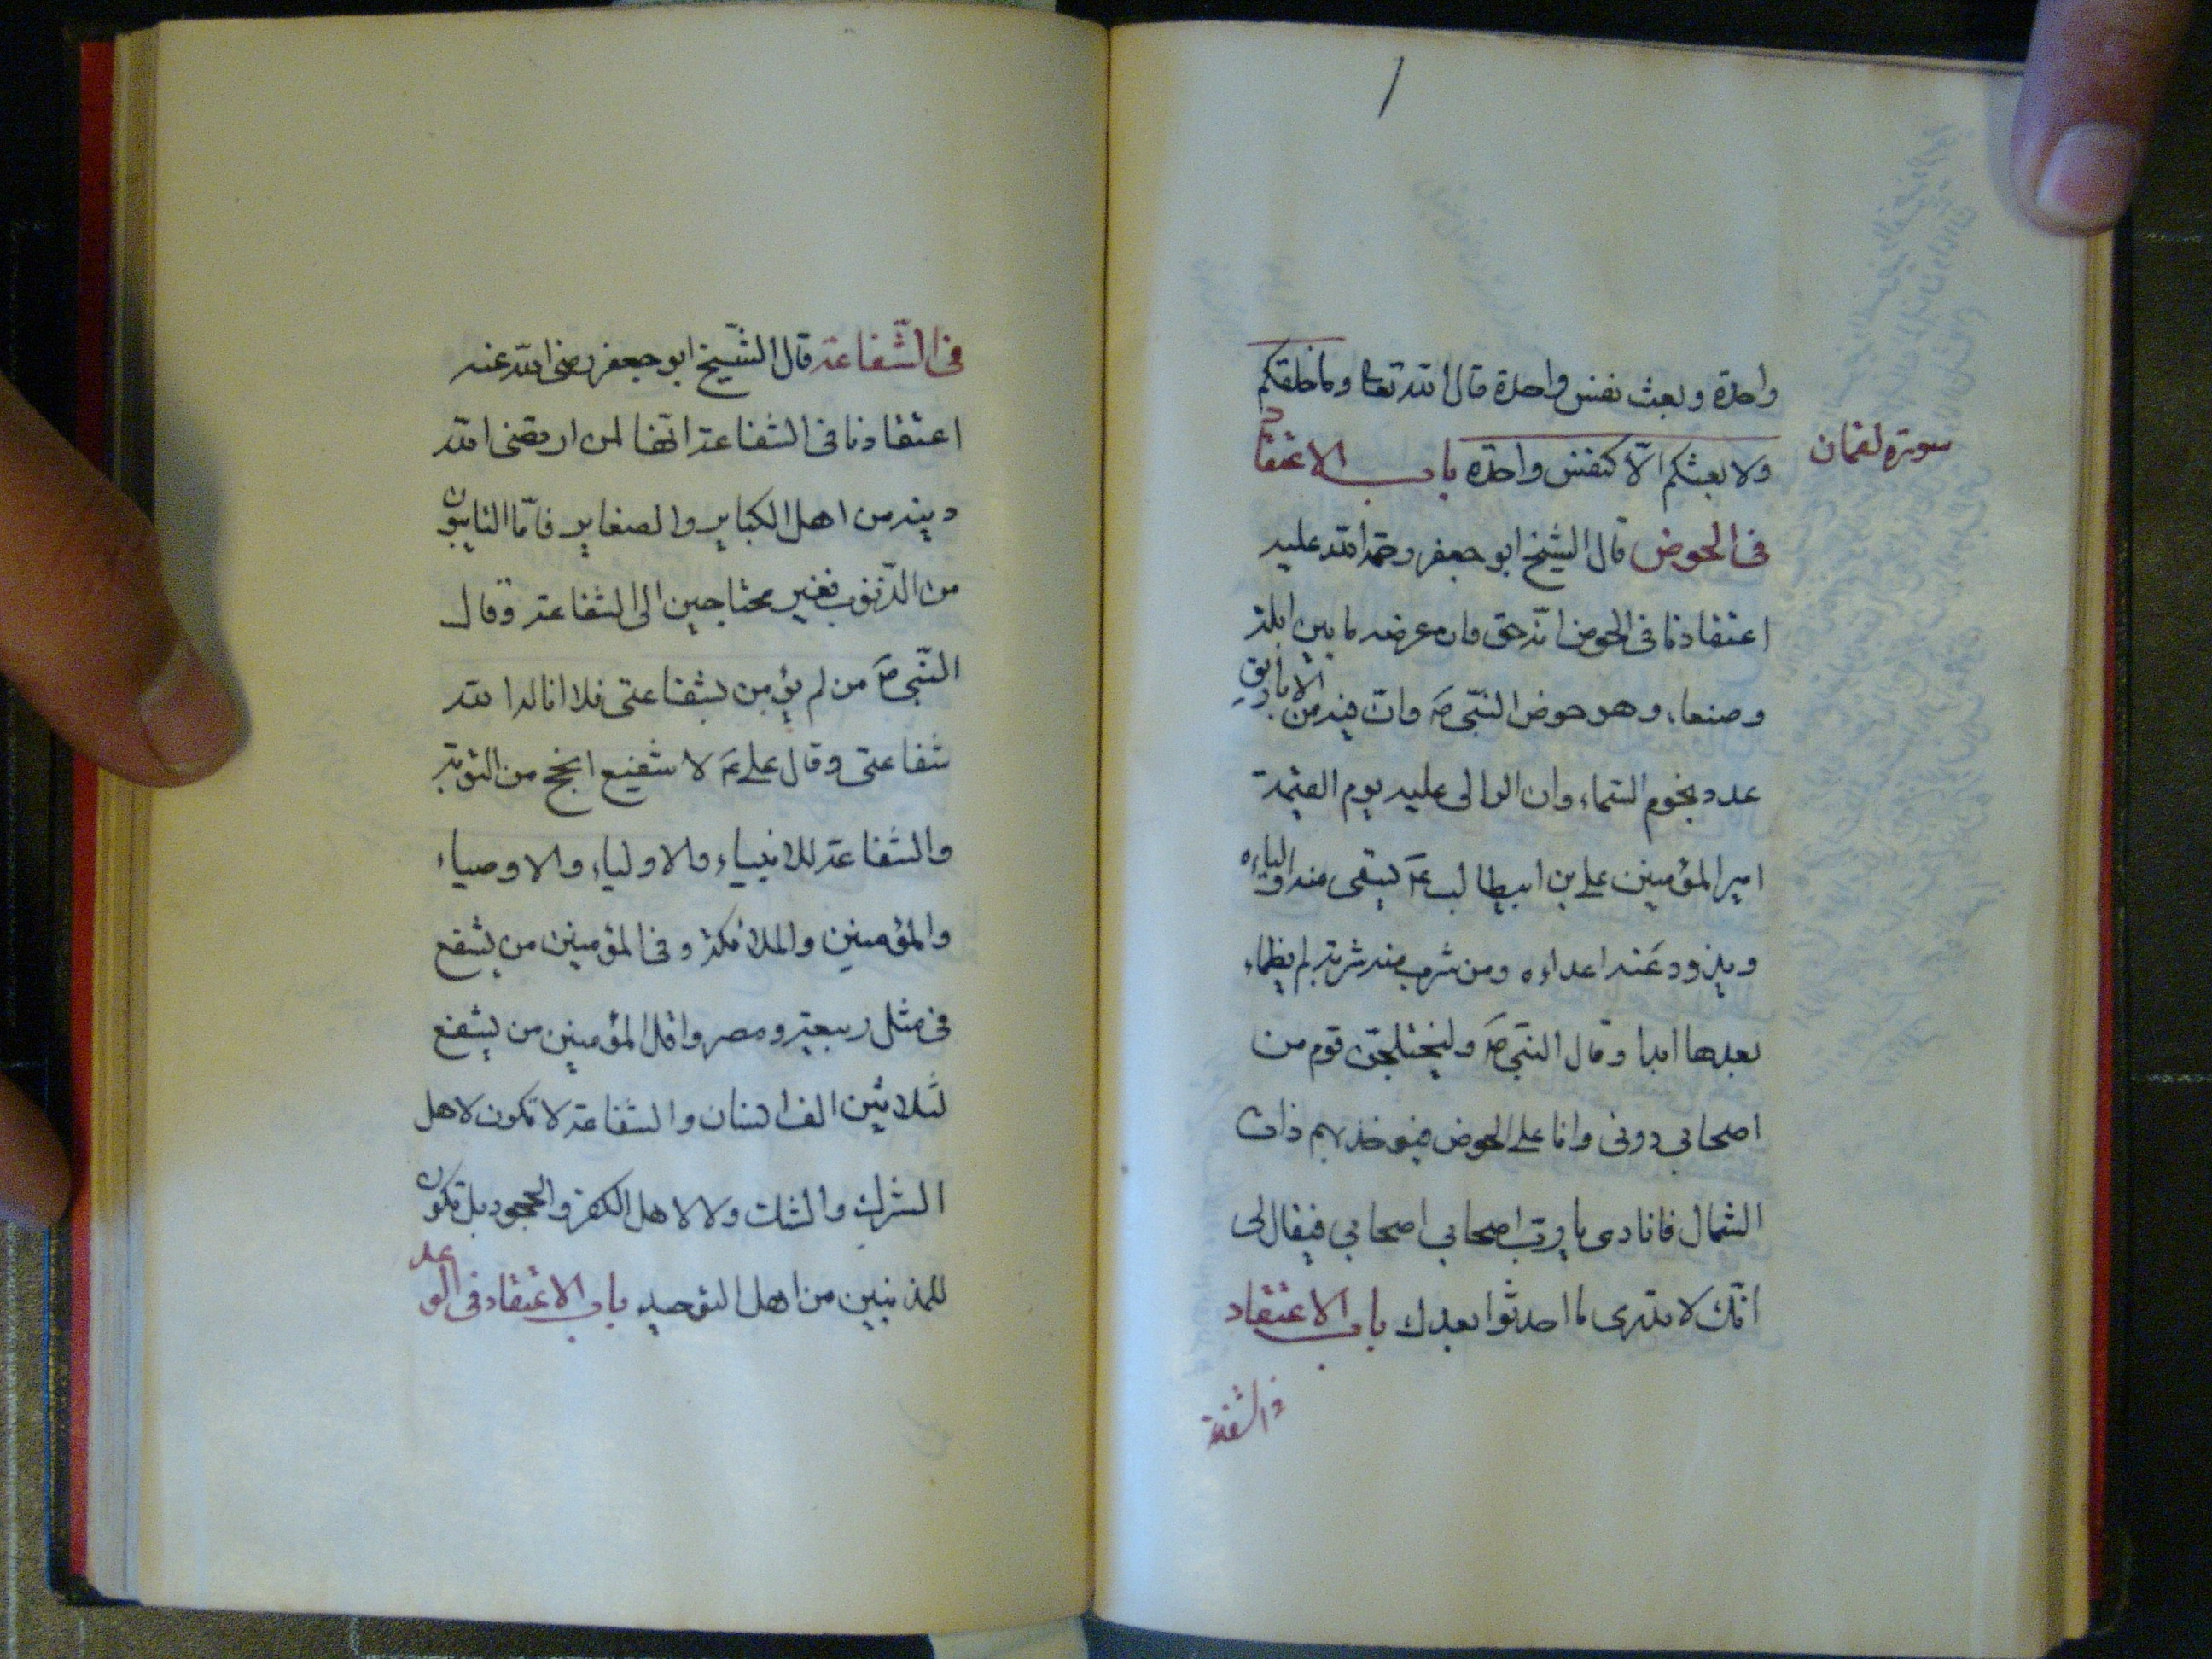 واحدة وبعث نفس واحدة قال الله تعالى وما خلقكم
ولا بعثكم الّا كنفس واحدة باب الاعتقاد
سورة لقمان
في الحوض قال الشيخ ابو جعفر رحمة الله عليه
اعتقادنا في الحوض انّه حق وان عرضه ما بين ايلة
وصنعاء وهو حوض النبّى صَ وانّ فيه من الاباريق
عدد نجوم السّماء وان الوالى عليه يوم القيٰمة
امير المؤمنين على بن ابيطالب عَ يسقى منه اولياءه
ويذود عنه اعداءه ومن شرب منه شربة لم يظماء
بعدها ابدا وقال النبّى صَ وليختلجنّ قوم من
اصحابي دونى وانا على الحوض فيؤخذ بهم ذات
الشمال فانادى يا ربّ اصحابي اصحابي فيقال لى
انّك لا تدرى ما احدثوا بعدك باب الاعتقاد
في الشفعة
في الشّفاعة قال الشّيخ ابو جعفر رضى الله عنه
اعتقادنا في الشفاعة انّها لمن ارتضى الله
دينه من اهل الكباير والصغاير فامّا التايبون
من الذّنوب فغير محتاجين الى الشفاعة وقال
النّبى صَ من لم يؤمن بشفاعتى فلا اناله الله
شفاعتى وقال على عَ لا شفيع انجح من التوبة
والشفاعة للانبياء والاولياء والاوصياء
والمؤمنين والملائكة وفي المؤمنين من يشفع
في مثل ربيعة ومضر واقل المؤمنين من يشفع
لثلاثين الف انسان والشفاعة لا تكون لاهل
الشرك والشك ولا لاهل الكفر والجحود بل تكون
للمذنبين من اهل التوحيد باب الاعتقاد في الوعد